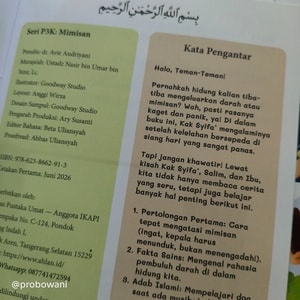 بِسْمِ اللهِ الرَّحْمٰنِ الرَّحِيْمِ
Seri P3K: Mimisan
Penulis: dr. Avie Andriyani
Murajaah: Ustadz Nasir bin Umar bin
Ilustrator: Goodway Studio
Layout: Anggi Wirza
Desain Sampul: Goodway Studio
Pengarah Produksi: Ary Susanti
Editor Bahasa: Beta Uliansyah
Proofread: Abbas Uliansyah
ISBN: 978-623-8662-91-3
Cetakan Pertama: Juni 2026
diterbitkan oleh:
Pustaka Umat — Anggota IKAPI
No. C-14, Pondok
Indah I,
Aren, Tangerang Selatan 15229
Whatsapp: 087741472594
dilindungi
Kata Pengantar
Halo, Teman-Teman!
Pernahkah hidung kalian tiba-
tiba mengeluarkan darah atau
mimisan? Wah, pasti rasanya
kaget dan panik, ya! Di dalam
buku ini, Kak Syifa' mengalaminya
setelah kelelahan bersepeda di
siang hari yang sangat panas.
Tapi jangan khawatir! Lewat
kisah Kak Syifa', Salim, dan Ibu,
kita tidak hanya membaca cerita
yang seru, tetapi juga belajar
banyak hal penting berikut ini.
1. Pertolongan Pertama: Cara
tepat mengatasi mimisan
(ingat, kepala harus
menunduk, bukan menengadah!).
2. Fakta Sains: Mengenal rahasia
pembuluh darah di dalam
hidung kita.
3. Adab Islami: Mempelajari do
saat ada
@probowani